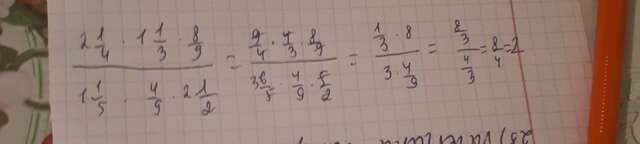 (2 1/4 · 1 1/3 · 8/9) / (1 1/5 · 4/9 · 2 1/2) = (9/4 · 4/3 · 8/9) / (6/5 · 4/9 · 5/2) = (1/3 · 8) / (3 · 4/9) = (8/3) / (4/3) = 8/4 = 2